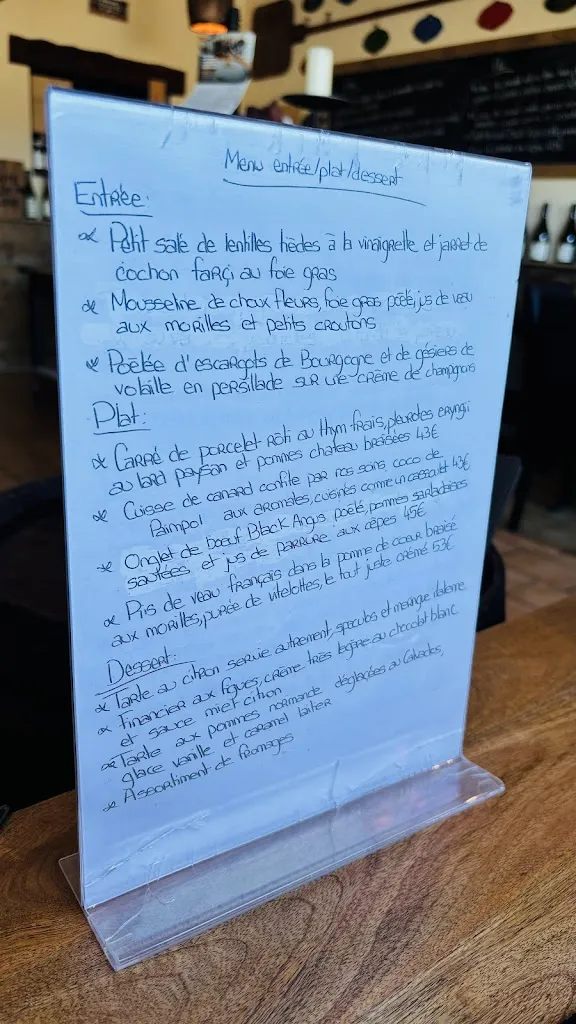 Menu entrée/plat/dessert
Entrée:
Petit salé de lentilles tièdes à la vinaigrette et jarret de
cochon farçi au foie gras
Mousseline de choux fleurs, foie gras poêlé, jus de veau
aux morilles et petits croutons
Poêlée d'escargots de Bourgogne et de gésiers de
volaille en persillade sur une crème de champignons
Plat:
Carré de porcelet rôti au thym frais, pleurotes eryngii
au lard paysan et pommes chateau braisées 43€
Cuisse de canard confite par nos soins, coco de
Paimpol aux aromates, cuisinés comme un cassoulet 43€
Onglet de boeuf Black Angus poêlé, pommes sarladaises
sautées et jus de parrure aux cèpes 45€
Pis de veau français dans la pomme de coeur braisé
aux morilles, purée de vitelottes, le tout juste crémé 53€
Dessert:
Tarte au citron servie autrement, speculos et meringue italienne
Financier aux figues, crème très légère au chocolat blanc
et sauce miel citron
Tarte aux pommes normande déglaçées au Calvados,
glace vanille et caramel laitier
Assortiment de fromages